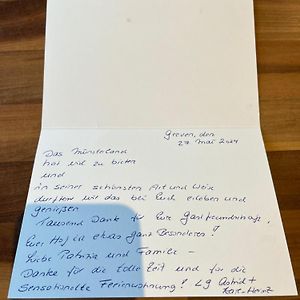 Greven, den
27. Mai 2024
Das Münsterland
hat viel zu bieten
und
in seiner schönsten Art und Weise
durften wir das bei Euch erleben und
genießen
Tausend Dank für Eure Gastfreundschaft,
Euer Hof ist etwas ganz Besonderes!
Liebe Patrizia und Familie -
Danke für die tolle Zeit und für die
Sensationelle Ferienwohnung! Lg Astrid +
Karl-Heinz